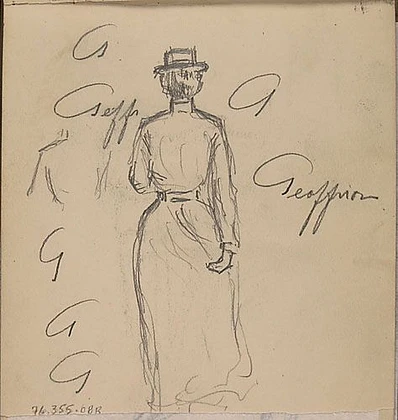 G
Geffr
G
Geoffron
G
G
G
74.355-08R